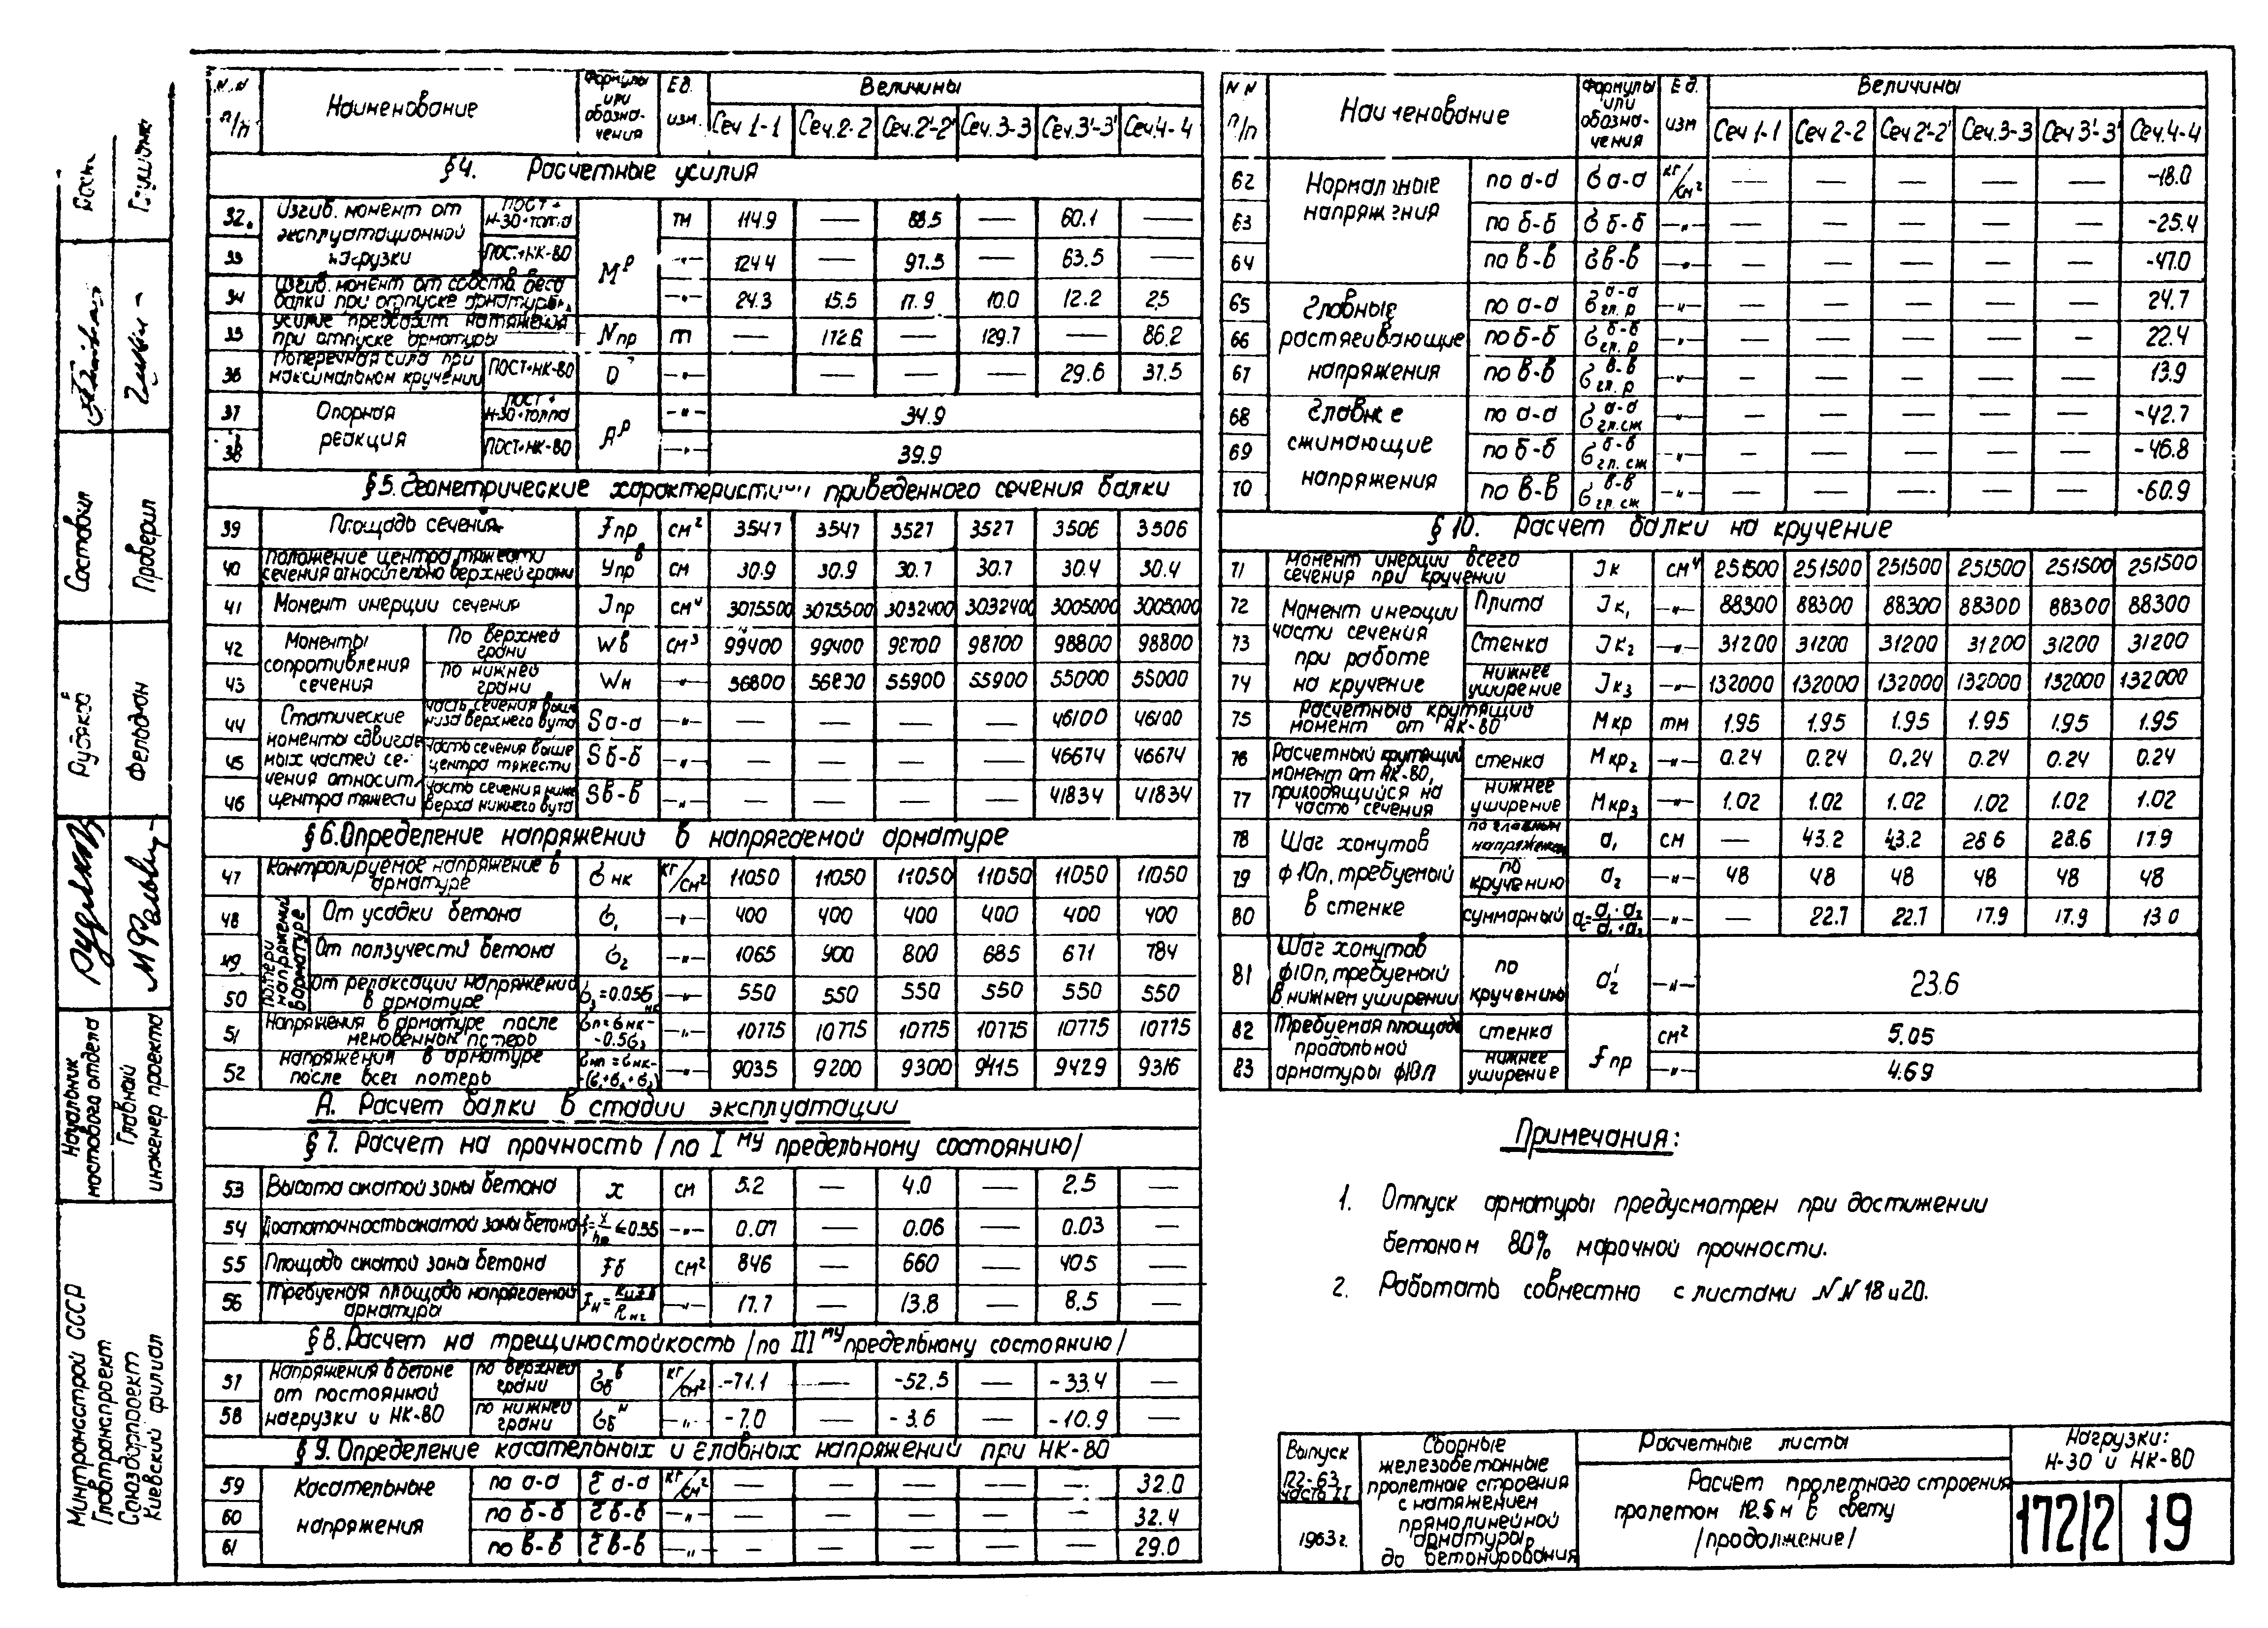 N.N п/п | Наименование | Формулы или обозначения | Ед. изм. | Величины
Сеч 1-1 | Сеч.2-2 | Сеч.2'-2' | Сеч.3-3 | Сеч.3'-3' | Сеч.4-4
§4. Расчетные усилия
32. | Изгиб. момент от эксплуатационной нагрузки | ПОСТ+Н-30+толпа | Mᵖ | тм | 114.9 | — | 88.5 | — | 60.1 | —
33 | ПОСТ+НК-80 | -"- | 124.4 | — | 97.5 | — | 63.5 | —
34 | Изгиб. момент от собств. веса балки при отпуске арматуры | -"- | 24.3 | 15.5 | 17.9 | 10.0 | 12.2 | 2.5
35 | Усилие предварит натяжения при отпуске арматуры | Nпр | т | — | 172.6 | — | 129.7 | — | 86.2
36 | Поперечная сила при максимальном кручении | ПОСТ+НК-80 | -"- | — | — | — | — | 29.6 | 37.5
37 | Опорная реакция | ПОСТ+Н-30+толпа | Aᵖ | -"- | 34.9
38 | ПОСТ+НК-80 | -"- | 39.9
§5. Геометрические характеристики приведенного сечения балки
39 | Площадь сечения | Fпр | см² | 3547 | 3547 | 3527 | 3527 | 3506 | 3506
40 | Положение центра тяжести сечения относительно верхней грани | Yпрᵛ | см | 30.9 | 30.9 | 30.7 | 30.7 | 30.4 | 30.4
41 | Момент инерции сечения | Jпр | см⁴ | 3075500 | 3075500 | 3032400 | 3032400 | 3005000 | 3005000
42 | Моменты сопротивления сечения | По верхней грани | Wв | см³ | 99400 | 99400 | 98700 | 98700 | 98800 | 98800
43 | По нижней грани | Wн | -"- | 56800 | 56800 | 55900 | 55900 | 55000 | 55000
44 | Статические моменты сдвигаемых частей сечения относит. центра тяжести | Часть сечения выше низа верхнего вута | Sа-а | -"- | — | — | — | — | 46100 | 46100
45 | Часть сечения выше центра тяжести | Sб-б | -"- | — | — | — | — | 46674 | 46674
46 | Часть сечения ниже верха нижнего вута | Sв-в | -"- | — | — | — | — | 41834 | 41834
§6. Определение напряжений в напрягаемой арматуре
47 | Контролируемое напряжение в арматуре | σнк | кг/см² | 11050 | 11050 | 11050 | 11050 | 11050 | 11050
48 | Потери напряжений в арматуре | От усадки бетона | σ₁ | -"- | 400 | 400 | 400 | 400 | 400 | 400
49 | От ползучести бетона | σ₂ | -"- | 1065 | 900 | 800 | 685 | 671 | 784
50 | От релаксации напряжений в арматуре | σ₃=0.05σнк | -"- | 550 | 550 | 550 | 550 | 550 | 550
51 | Напряжения в арматуре после мгновенных потерь | σп=σнк-0.5σ₃ | -"- | 10775 | 10775 | 10775 | 10775 | 10775 | 10775
52 | Напряжения в арматуре после всех потерь | σнп=σнк-(σ₁+σ₂+σ₃) | -"- | 9035 | 9200 | 9300 | 9415 | 9429 | 9316
А. Расчет балки в стадии эксплуатации
§7. Расчет на прочность /по I му предельному состоянию/
53 | Высота сжатой зоны бетона | x | см | 5.2 | — | 4.0 | — | 2.5 | —
54 | Достаточность сжатой зоны бетона | ≤0.55 | -"- | 0.07 | — | 0.06 | — | 0.03 | —
55 | Площадь сжатой зоны бетона | Fб | см² | 846 | — | 660 | — | 405 | —
56 | Требуемая площадь напрягаемой арматуры | Fн= | -"- | 17.7 | — | 13.8 | — | 8.5 | —
§8. Расчет на трещиностойкость /по III му предельному состоянию/
57 | Напряжения в бетоне от постоянной нагрузки и НК-80 | по верхней грани | σбᵛ | кг/см² | -71.1 | — | -52.5 | — | -33.4 | —
58 | по нижней грани | σбᴴ | -"- | -7.0 | — | -3.6 | — | -10.9 | —
§9. Определение касательных и главных напряжений при НК-80
59 | Касательные напряжения | по а-а | τ а-а | кг/см² | — | — | — | — | — | 32.0
60 | по б-б | τ б-б | -"- | — | — | — | — | — | 32.4
61 | по в-в | τ в-в | -"- | — | — | — | — | — | 29.0
NN п/п | Наименование | Формулы или обозначения | Ед. изм | Величины
Сеч 1-1 | Сеч 2-2 | Сеч 2'-2' | Сеч.3-3 | Сеч 3'-3' | Сеч.4-4
62 | Нормальные напряжения | по а-а | σ а-а | кг/см² | — | — | — | — | — | -18.0
63 | по б-б | σ б-б | -"- | — | — | — | — | — | -25.4
64 | по в-в | σв-в | -"- | — | — | — | — | — | -47.0
65 | Главные растягивающие напряжения | по а-а | σ а-а гл.р | -"- | — | — | — | — | — | 24.7
66 | по б-б | σ б-б гл.р | -"- | — | — | — | — | — | 22.4
67 | по в-в | σ в-в гл.р | -"- | — | — | — | — | — | 13.9
68 | Главные сжимающие напряжения | по а-а | σ а-а гл.сж | -"- | — | — | — | — | — | -42.7
69 | по б-б | σ б-б гл.сж | -"- | — | — | — | — | — | -46.8
70 | по в-в | σ в-в гл.сж | -"- | — | — | — | — | — | -60.9
§10. Расчет балки на кручение
71 | Момент инерции всего сечения при кручении | Jк | см⁴ | 251500 | 251500 | 251500 | 251500 | 251500 | 251500
72 | Момент инерции части сечения при работе на кручение | Плита | Jк₁ | -"- | 88300 | 88300 | 88300 | 88300 | 88300 | 88300
73 | Стенка | Jк₂ | -"- | 31200 | 31200 | 31200 | 31200 | 31200 | 31200
74 | Нижнее уширение | Jк₃ | -"- | 132000 | 132000 | 132000 | 132000 | 132000 | 132000
75 | Расчетный крутящий момент от НК-80 | Мкр | тм | 1.95 | 1.95 | 1.95 | 1.95 | 1.95 | 1.95
76 | Расчетный крутящий момент от НК-80, приходящийся на часть сечения | стенка | Мкр₂ | -"- | 0.24 | 0.24 | 0.24 | 0.24 | 0.24 | 0.24
77 | нижнее уширение | Мкр₃ | -"- | 1.02 | 1.02 | 1.02 | 1.02 | 1.02 | 1.02
78 | Шаг хомутов ϕ10п, требуемый в стенке | по главным напряжениям | а₁ | см | — | 43.2 | 43.2 | 28.6 | 28.6 | 17.9
79 | по кручению | а₂ | -"- | 48 | 48 | 48 | 48 | 48 | 48
80 | суммарный | а=а₁·а₂/а₁+а₂ | -"- | — | 22.7 | 22.7 | 17.9 | 17.9 | 13.0
81 | Шаг хомутов ϕ10п, требуемый в нижнем уширении | по кручению | а₂' | -"- | 23.6
82 | Требуемая площадь продольной арматуры ϕ10п | стенка | Fпр | см² | 5.05
83 | нижнее уширение | -"- | 4.69
Примечания:
1. Отпуск арматуры предусмотрен при достижении
бетоном 80% марочной прочности.
2. Работать совместно с листами NN 18 и 20.
Выпуск 122-63 часть II
1963г.
Сборные железобетонные пролетные строения с натяжением прямолинейной арматуры до бетонирования
Расчетные листы
Расчет пролетного строения
пролетом 12.5 м в свету
/продолжение/
Нагрузки:
Н-30 и НК-80
172/2 | 19
Минтрансстрой СССР
Главтранспроект
Союздорпроект
Киевский филиал
Начальник мостового отдела
Главный инженер проекта
Рудяков
Фельдман
Составил
Проверил